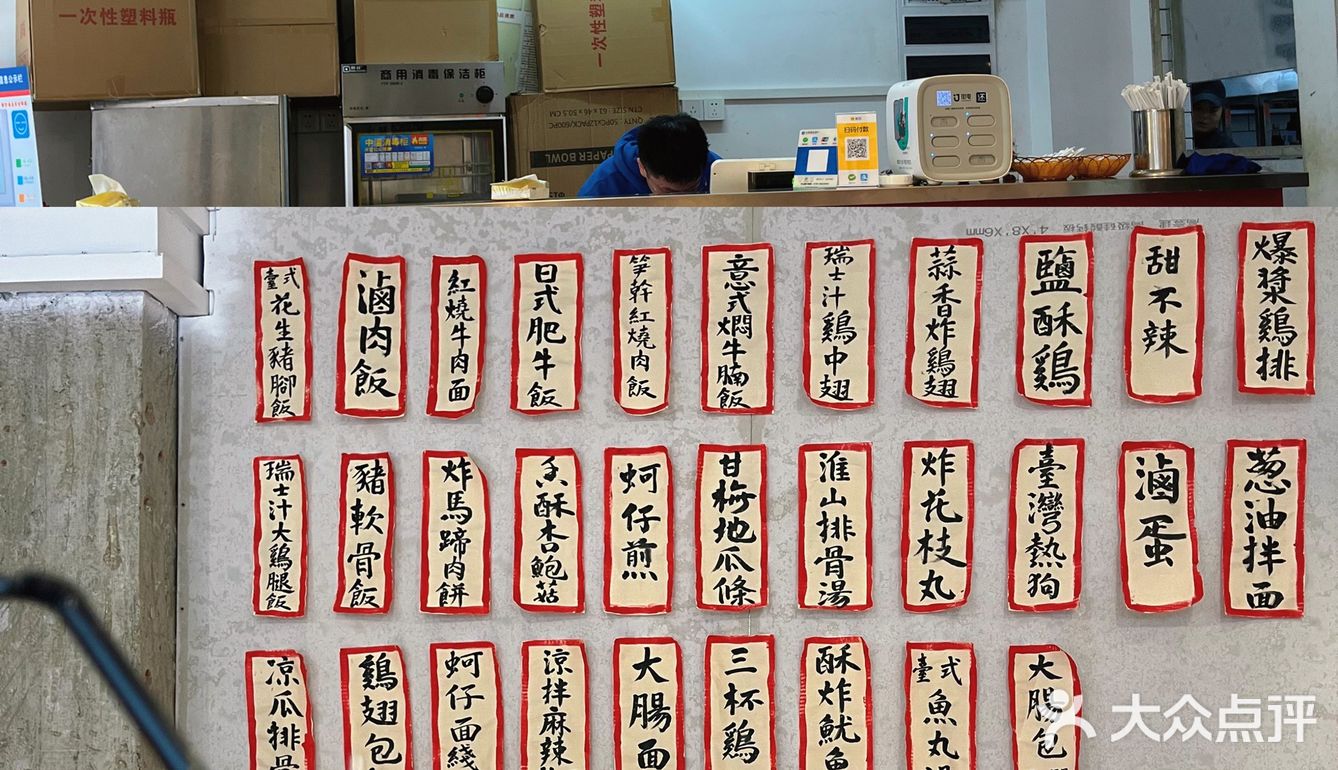 一次性塑料瓶
一次性塑料
商用消毒保洁柜
中国消毒柜
CTN SIZE: 61×46×50.5 CM
QNTY 50PCX12PACK/600PC
PAPER BOWL
扫码付款
4'X8'X6mm
臺式花生豬腳飯
滷肉飯
紅燒牛肉面
日式肥牛飯
笋幹紅燒肉飯
意式燜牛腩飯
瑞士汁鷄中翅
蒜香炸鷄翅
鹽酥鷄
甜不辣
爆漿鷄排
瑞士汁大鷄腿飯
豬軟骨飯
炸馬蹄肉餅
香酥杏鮑菇
蚵仔煎
甘梅地瓜條
淮山排骨湯
炸花枝丸
臺灣熱狗
滷蛋
葱油拌面
凉瓜排骨
鷄翅包
蚵仔面綫
涼拌麻辣
大腸面
三杯鷄
酥炸魷魚
臺式魚丸湯
大腸包
大众点评